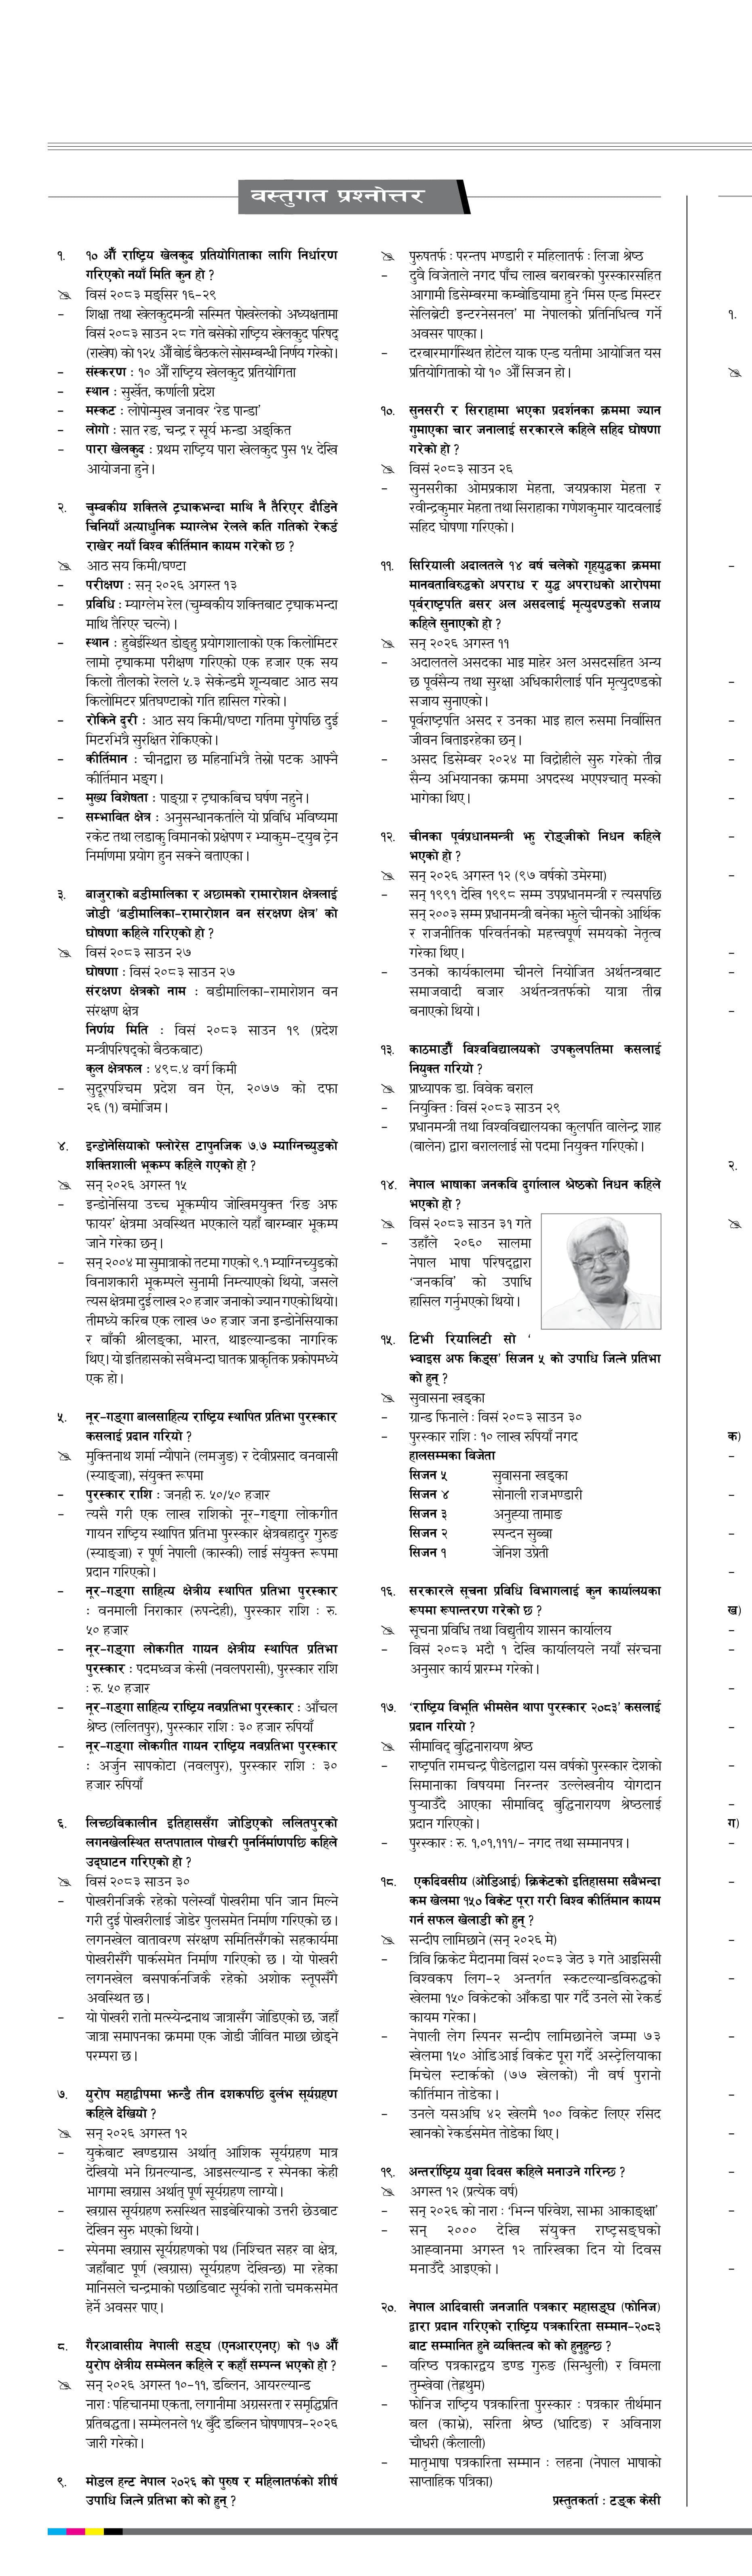 वस्तुगत प्रश्नोत्तर
१. १० औँ राष्ट्रिय खेलकुद प्रतियोगिताका लागि निर्धारण
गरिएको नयाँ मिति कुन हो ?
विसं २०८३ मङ्सिर १६-२९
- शिक्षा तथा खेलकुदमन्त्री सस्मित पोखरेलको अध्यक्षतामा
विसं २०८३ साउन २८ गते बसेको राष्ट्रिय खेलकुद परिषद्
(राखेप) को १२५ औँ बोर्ड बैठकले सोसम्बन्धी निर्णय गरेको।
- संस्करण : १० औँ राष्ट्रिय खेलकुद प्रतियोगिता
- स्थान : सुर्खेत, कर्णाली प्रदेश
- मस्कट : लोपोन्मुख जनावर ‘रेड पान्डा’
- लोगो : सात रङ, चन्द्र र सूर्य झन्डा अङ्कित
- पारा खेलकुद : प्रथम राष्ट्रिय पारा खेलकुद पुस १५ देखि
आयोजना हुने।
२. चुम्बकीय शक्तिले ट्र्याकभन्दा माथि नै तैरिएर दौडिने
चिनियाँ अत्याधुनिक म्याग्लेभ रेलले कति गतिको रेकर्ड
राखेर नयाँ विश्व कीर्तिमान कायम गरेको छ ?
आठ सय किमी/घण्टा
- परीक्षण : सन् २०२६ अगस्त १३
- प्रविधि : म्याग्लेभ रेल (चुम्बकीय शक्तिबाट ट्र्याकभन्दा
माथि तैरिएर चल्ने)।
- स्थान : हुबेईस्थित डोङ्हु प्रयोगशालाको एक किलोमिटर
लामो ट्र्याकमा परीक्षण गरिएको एक हजार एक सय
किलो तौलको रेलले ५.३ सेकेन्डमै शून्यबाट आठ सय
किलोमिटर प्रतिघण्टाको गति हासिल गरेको।
- रोकिने दुरी : आठ सय किमी/घण्टा गतिमा पुगेपछि दुई
मिटरभित्रै सुरक्षित रोकिएको।
- कीर्तिमान : चीनद्वारा छ महिनाभित्रै तेस्रो पटक आफ्नै
कीर्तिमान भङ्ग।
- मुख्य विशेषता : पाङ्ग्रा र ट्र्याकबिच घर्षण नहुने।
- सम्भावित क्षेत्र : अनुसन्धानकर्ताले यो प्रविधि भविष्यमा
रकेट तथा लडाकु विमानको प्रक्षेपण र भ्याकुम-ट्युब ट्रेन
निर्माणमा प्रयोग हुन सक्ने बताएका।
३. बाजुराको बडीमालिका र अछामको रामारोशन क्षेत्रलाई
जोडी ‘बडीमालिका-रामारोशन वन संरक्षण क्षेत्र’ को
घोषणा कहिले गरिएको हो ?
विसं २०८३ साउन २७
घोषणा : विसं २०८३ साउन २७
संरक्षण क्षेत्रको नाम : बडीमालिका-रामारोशन वन
संरक्षण क्षेत्र
निर्णय मिति : विसं २०८३ साउन १९ (प्रदेश
मन्त्रीपरिषद्को बैठकबाट)
कुल क्षेत्रफल : ४९८.४ वर्ग किमी
- सुदूरपश्चिम प्रदेश वन ऐन, २०७७ को दफा
२६ (१) बमोजिम।
४. इन्डोनेसियाको फ्लोरेस टापुनजिक ७.७ म्याग्निच्युडको
शक्तिशाली भूकम्प कहिले गएको हो ?
सन् २०२६ अगस्त १५
- इन्डोनेसिया उच्च भूकम्पीय जोखिमयुक्त ‘रिङ अफ
फायर’ क्षेत्रमा अवस्थित भएकाले यहाँ बारम्बार भूकम्प
जाने गरेका छन्।
- सन् २००४ मा सुमात्राको तटमा गएको ९.१ म्याग्निच्युडको
विनाशकारी भूकम्पले सुनामी निम्त्याएको थियो, जसले
त्यस क्षेत्रमा दुई लाख २० हजार जनाको ज्यान गएको थियो।
तीमध्ये करिब एक लाख ७० हजार जना इन्डोनेसियाका
र बाँकी श्रीलङ्का, भारत, थाइल्यान्डका नागरिक
थिए। यो इतिहासको सबैभन्दा घातक प्राकृतिक प्रकोपमध्ये
एक हो।
५. नूर-गङ्गा बालसाहित्य राष्ट्रिय स्थापित प्रतिभा पुरस्कार
कसलाई प्रदान गरियो ?
मुक्तिनाथ शर्मा न्यौपाने (लमजुङ) र देवीप्रसाद वनवासी
(स्याङ्जा), संयुक्त रूपमा
- पुरस्कार राशि : जनही रु. ५०/५० हजार
- त्यसै गरी एक लाख राशिको नूर-गङ्गा लोकगीत
गायन राष्ट्रिय स्थापित प्रतिभा पुरस्कार क्षेत्रबहादुर गुरुङ
(स्याङ्जा) र पूर्ण नेपाली (कास्की) लाई संयुक्त रूपमा
प्रदान गरिएको।
- नूर-गङ्गा साहित्य क्षेत्रीय स्थापित प्रतिभा पुरस्कार
: वनमाली निराकार (रुपन्देही), पुरस्कार राशि : रु.
५० हजार
- नूर-गङ्गा लोकगीत गायन क्षेत्रीय स्थापित प्रतिभा
पुरस्कार : पदमध्वज केसी (नवलपरासी), पुरस्कार राशि
: रु. ५० हजार
- नूर-गङ्गा साहित्य राष्ट्रिय नवप्रतिभा पुरस्कार : आँचल
श्रेष्ठ (ललितपुर), पुरस्कार राशि : ३० हजार रुपियाँ
- नूर-गङ्गा लोकगीत गायन राष्ट्रिय नवप्रतिभा पुरस्कार
: अर्जुन सापकोटा (नवलपुर), पुरस्कार राशि : ३०
हजार रुपियाँ
६. लिच्छविकालीन इतिहाससँग जोडिएको ललितपुरको
लगनखेलस्थित सप्तपाताल पोखरी पुनर्निर्माणपछि कहिले
उद्घाटन गरिएको हो ?
विसं २०८३ साउन ३०
- पोखरीनजिकै रहेको पलेस्वाँ पोखरीमा पनि जान मिल्ने
गरी दुई पोखरीलाई जोडेर पुलसमेत निर्माण गरिएको छ।
लगनखेल वातावरण संरक्षण समितिसँगको सहकार्यमा
पोखरीसँगै पार्कसमेत निर्माण गरिएको छ । यो पोखरी
लगनखेल बसपार्कनजिकै रहेको अशोक स्तूपसँगै
अवस्थित छ।
- यो पोखरी रातो मत्स्येन्द्रनाथ जात्रासँग जोडिएको छ, जहाँ
जात्रा समापनका क्रममा एक जोडी जीवित माछा छोड्ने
परम्परा छ।
७. युरोप महाद्वीपमा झन्डै तीन दशकपछि दुर्लभ सूर्यग्रहण
कहिले देखियो ?
सन् २०२६ अगस्त १२
- युकेबाट खण्डग्रास अर्थात् आंशिक सूर्यग्रहण मात्र
देखियो भने ग्रिनल्यान्ड, आइसल्यान्ड र स्पेनका केही
भागमा खग्रास अर्थात् पूर्ण सूर्यग्रहण लाग्यो।
- खग्रास सूर्यग्रहण रुसस्थित साइबेरियाको उत्तरी छेउबाट
देखिन सुरु भएको थियो।
- स्पेनमा खग्रास सूर्यग्रहणको पथ (निश्चित सहर वा क्षेत्र,
जहाँबाट पूर्ण (खग्रास) सूर्यग्रहण देखिन्छ) मा रहेका
मानिसले चन्द्रमाको पछाडिबाट सूर्यको रातो चमकसमेत
हेर्ने अवसर पाए।
८. गैरआवासीय नेपाली सङ्घ (एनआरएनए) को १७ औँ
युरोप क्षेत्रीय सम्मेलन कहिले र कहाँ सम्पन्न भएको हो ?
सन् २०२६ अगस्त १०-११, डब्लिन, आयरल्यान्ड
नारा : पहिचानमा एकता, लगानीमा अग्रसरता र समृद्धिप्रति
प्रतिबद्धता। सम्मेलनले १५ बुँदे डब्लिन घोषणापत्र-२०२६
जारी गरेको।
९. मोडल हन्ट नेपाल २०२६ को पुरुष र महिलातर्फको शीर्ष
उपाधि जित्ने प्रतिभा को को हुन् ?
पुरुषतर्फ : परन्तप भण्डारी र महिलातर्फ : लिजा श्रेष्ठ
- दुवै विजेताले नगद पाँच लाख बराबरको पुरस्कारसहित
आगामी डिसेम्बरमा कम्बोडियामा हुने ‘मिस एन्ड मिस्टर
सेलिब्रेटी इन्टरनेसनल’ मा नेपालको प्रतिनिधित्व गर्ने
अवसर पाएका।
- दरबारमार्गस्थित होटेल याक एन्ड यतीमा आयोजित यस
प्रतियोगिताको यो १० औँ सिजन हो।
१०. सुनसरी र सिराहामा भएका प्रदर्शनका क्रममा ज्यान
गुमाएका चार जनालाई सरकारले कहिले सहिद घोषणा
गरेको हो ?
विसं २०८३ साउन २६
- सुनसरीका ओमप्रकाश मेहता, जयप्रकाश मेहता र
रवीन्द्रकुमार मेहता तथा सिराहाका गणेशकुमार यादवलाई
सहिद घोषणा गरिएको।
११. सिरियाली अदालतले १४ वर्ष चलेको गृहयुद्धका क्रममा
मानवताविरुद्धको अपराध र युद्ध अपराधको आरोपमा
पूर्वराष्ट्रपति बसर अल असदलाई मृत्युदण्डको सजाय
कहिले सुनाएको हो ?
सन् २०२६ अगस्त ११
- अदालतले असदका भाइ माहेर अल असदसहित अन्य
छ पूर्वसैन्य तथा सुरक्षा अधिकारीलाई पनि मृत्युदण्डको
सजाय सुनाएको।
- पूर्वराष्ट्रपति असद र उनका भाइ हाल रुसमा निर्वासित
जीवन बिताइरहेका छन्।
- असद डिसेम्बर २०२४ मा विद्रोहीले सुरु गरेको तीव्र
सैन्य अभियानका क्रममा अपदस्थ भएपश्चात् मस्को
भागेका थिए।
१२. चीनका पूर्वप्रधानमन्त्री झु रोङ्जीको निधन कहिले
भएको हो ?
सन् २०२६ अगस्त १२ (९७ वर्षको उमेरमा)
- सन् १९९१ देखि १९९८ सम्म उपप्रधानमन्त्री र त्यसपछि
सन् २००३ सम्म प्रधानमन्त्री बनेका झुले चीनको आर्थिक
र राजनीतिक परिवर्तनको महत्त्वपूर्ण समयको नेतृत्व
गरेका थिए।
- उनको कार्यकालमा चीनले नियोजित अर्थतन्त्रबाट
समाजवादी बजार अर्थतन्त्रतर्फको यात्रा तीव्र
बनाएको थियो।
१३. काठमाडौँ विश्वविद्यालयको उपकुलपतिमा कसलाई
नियुक्त गरियो ?
प्राध्यापक डा. विवेक बराल
- नियुक्ति : विसं २०८३ साउन २९
- प्रधानमन्त्री तथा विश्वविद्यालयका कुलपति वालेन्द्र शाह
(बालेन) द्वारा बराललाई सो पदमा नियुक्त गरिएको।
१४. नेपाल भाषाका जनकवि दुर्गालाल श्रेष्ठको निधन कहिले
भएको हो ?
विसं २०८३ साउन ३१ गते
- उहाँले २०६० सालमा
नेपाल भाषा परिषद्द्वारा
‘जनकवि’ को उपाधि
हासिल गर्नुभएको थियो।
१५. टिभी रियालिटी सो ‘
भ्वाइस अफ किड्स’ सिजन ५ को उपाधि जित्ने प्रतिभा
को हुन् ?
सुवासना खड्का
- ग्रान्ड फिनाले : विसं २०८३ साउन ३०
- पुरस्कार राशि : १० लाख रुपियाँ नगद
हालसम्मका विजेता
सिजन ५ सुवासना खड्का
सिजन ४ सोनाली राजभण्डारी
सिजन ३ अनुह्या तामाङ
सिजन २ स्पन्दन सुब्बा
सिजन १ जेनिश उप्रेती
१६. सरकारले सूचना प्रविधि विभागलाई कुन कार्यालयका
रूपमा रूपान्तरण गरेको छ ?
सूचना प्रविधि तथा विद्युतीय शासन कार्यालय
- विसं २०८३ भदौ १ देखि कार्यालयले नयाँ संरचना
अनुसार कार्य प्रारम्भ गरेको।
१७. ‘राष्ट्रिय विभूति भीमसेन थापा पुरस्कार २०८३’ कसलाई
प्रदान गरियो ?
सीमाविद् बुद्धिनारायण श्रेष्ठ
- राष्ट्रपति रामचन्द्र पौडेलद्वारा यस वर्षको पुरस्कार देशको
सिमानाका विषयमा निरन्तर उल्लेखनीय योगदान
पुऱ्याउँदै आएका सीमाविद् बुद्धिनारायण श्रेष्ठलाई
प्रदान गरिएको।
- पुरस्कार : रु. १,०१,१११/- नगद तथा सम्मानपत्र।
१८. एकदिवसीय (ओडिआई) क्रिकेटको इतिहासमा सबैभन्दा
कम खेलमा १५० विकेट पूरा गरी विश्व कीर्तिमान कायम
गर्न सफल खेलाडी को हुन् ?
सन्दीप लामिछाने (सन् २०२६ मे)
- त्रिवि क्रिकेट मैदानमा विसं २०८३ जेठ ३ गते आइसिसी
विश्वकप लिग-२ अन्तर्गत स्कटल्यान्डविरुद्धको
खेलमा १५० विकेटको आँकडा पार गर्दै उनले सो रेकर्ड
कायम गरेका।
- नेपाली लेग स्पिनर सन्दीप लामिछानेले जम्मा ७३
खेलमा १५० ओडिआई विकेट पूरा गर्दै अस्ट्रेलियाका
मिचेल स्टार्कको (७७ खेलको) नौ वर्ष पुरानो
कीर्तिमान तोडेका।
- उनले यसअघि ४२ खेलमै १०० विकेट लिएर रसिद
खानको रेकर्डसमेत तोडेका थिए।
१९. अन्तर्राष्ट्रिय युवा दिवस कहिले मनाउने गरिन्छ ?
अगस्त १२ (प्रत्येक वर्ष)
- सन् २०२६ को नारा : ‘भिन्न परिवेश, साझा आकाङ्क्षा’
- सन् २००० देखि संयुक्त राष्ट्रसङ्घको
आह्वानमा अगस्त १२ तारिखका दिन यो दिवस
मनाउँदै आइएको।
२०. नेपाल आदिवासी जनजाति पत्रकार महासङ्घ (फोनिज)
द्वारा प्रदान गरिएको राष्ट्रिय पत्रकारिता सम्मान-२०८३
बाट सम्मानित हुने व्यक्तित्व को को हुनुहुन्छ ?
- वरिष्ठ पत्रकारद्वय डण्ड गुरुङ (सिन्धुली) र विमला
तुम्खेवा (तेह्रथुम)
- फोनिज राष्ट्रिय पत्रकारिता पुरस्कार : पत्रकार तीर्थमान
बल (काभ्रे), सरिता श्रेष्ठ (धादिङ) र अविनाश
चौधरी (कैलाली)
- मातृभाषा पत्रकारिता सम्मान : लहना (नेपाल भाषाको
साप्ताहिक पत्रिका)
प्रस्तुतकर्ता : टङ्क केसी
१.
२.
क)
ख)
ग)